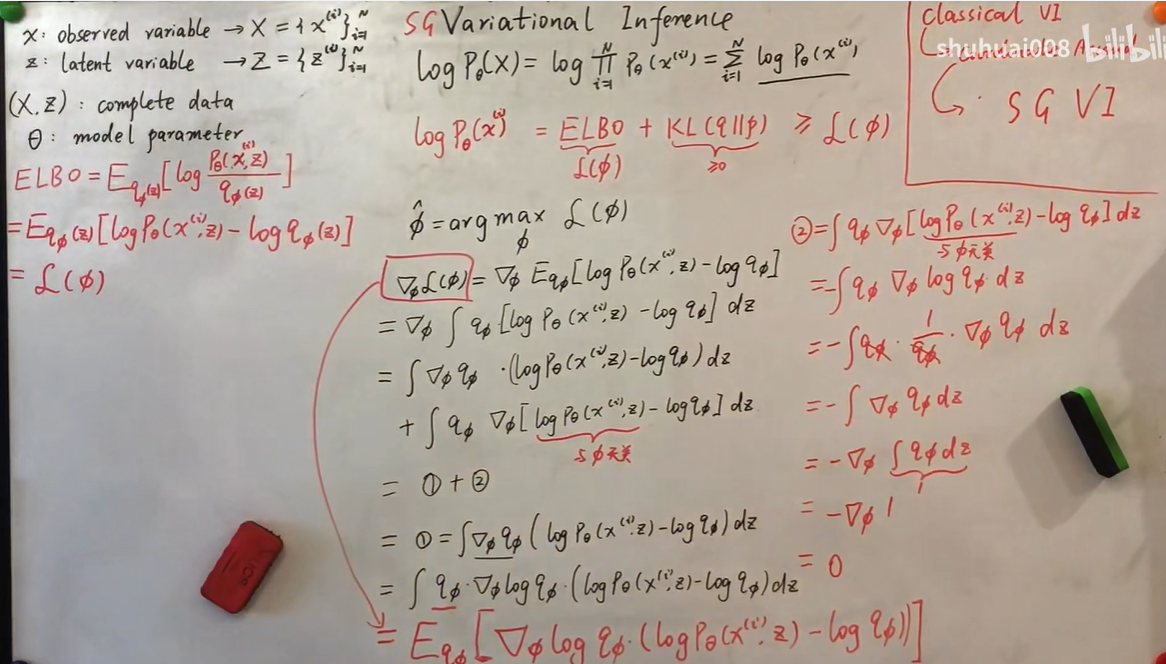 x: observed variable → X = {x^{(i)}}_{i=1}^{N}
z: latent variable → Z = {z^{(i)}}_{i=1}^{N}
(X, Z): complete data
θ: model parameter
ELBO = E_{q_ϕ(z)}[log P_θ(x^{(i)}, z) / q_ϕ(z)]
= E_{q_ϕ(z)}[log P_θ(x^{(i)}, z) - log q_ϕ(z)]
= L(ϕ)
SG Variational Inference
log P_θ(X) = log ∏_{i=1}^{N} P_θ(x^{(i)}) = ∑_{i=1}^{N} log P_θ(x^{(i)})
log P_θ(x^{(i)}) = ELBO + KL(q||p) ≥ L(ϕ)
L(ϕ) ≥0
ϕ̂ = arg max_ϕ L(ϕ)
∇_ϕ L(ϕ) = ∇_ϕ E_{q_ϕ}[log P_θ(x^{(i)}, z) - log q_ϕ]
= ∇_ϕ ∫ q_ϕ [log P_θ(x^{(i)}, z) - log q_ϕ] dz
= ∫ ∇_ϕ q_ϕ · (log P_θ(x^{(i)}, z) - log q_ϕ) dz
+ ∫ q_ϕ ∇_ϕ [log P_θ(x^{(i)}, z) - log q_ϕ] dz
与ϕ无关
= ① + ②
= ① = ∫ ∇_ϕ q_ϕ (log P_θ(x^{(i)}, z) - log q_ϕ) dz
= ∫ q_ϕ · ∇_ϕ log q_ϕ · (log P_θ(x^{(i)}, z) - log q_ϕ) dz
= E_{q_ϕ}[∇_ϕ log q_ϕ · (log P_θ(x^{(i)}, z) - log q_ϕ)]
Classical VI
SGVI
shuhuai008 bilibili
② = ∫ q_ϕ ∇_ϕ [log P_θ(x^{(i)}, z) - log q_ϕ] dz
与ϕ无关
= -∫ q_ϕ ∇_ϕ log q_ϕ dz
= -∫ q_ϕ · 1/q_ϕ · ∇_ϕ q_ϕ dz
= -∫ ∇_ϕ q_ϕ dz
= -∇_ϕ ∫ q_ϕ dz
1
= -∇_ϕ 1
= 0